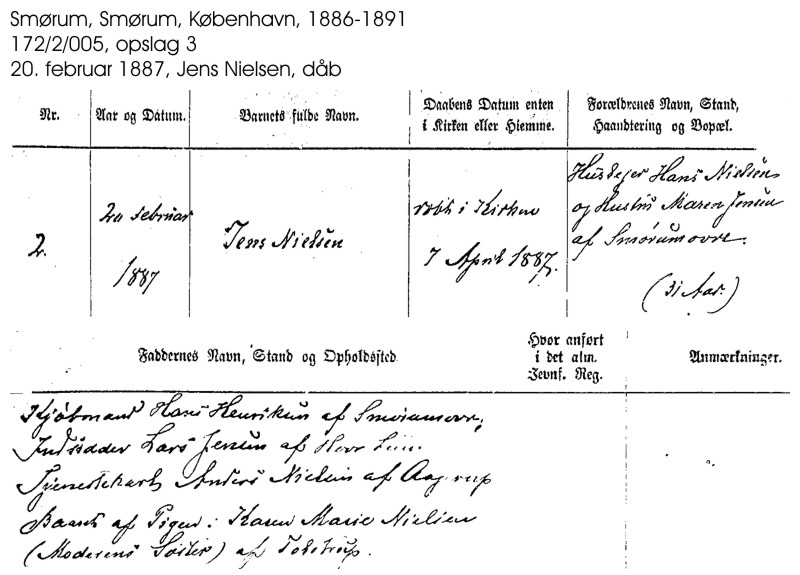 Smørum, Smørum, København, 1886-1891
172/2/005, opslag 3
20. februar 1887, Jens Nielsen, dåb
Nr.
Aar og Datum.
Barnets fulde Navn.
Daabens Datum enten
i Kirken eller Hiemme.
Forældrenes Navn, Stand,
Haandtering og Bopæl.
2.
20 Februar
1887
Jens Nielsen
døbt i Kirken
7 April 1887.
Huseier Hans Nielsen
og Hustru Maren Jensen
af Smørumovre.
(31 Aar.)
Faddernes Navn, Stand og Opholdssted.
Hvor anført
i det alm.
Jevnf. Reg.
Anmærkninger.
Kjøbmand Hans Henriksen af Smørumovre,
Indsidder Lars Jensen af
Tjenestekarl Anders Nielsen af Aagerup
Baaret af Pigen: Karen Marie Nielsen
(Moderens Søster) af Tostrup.